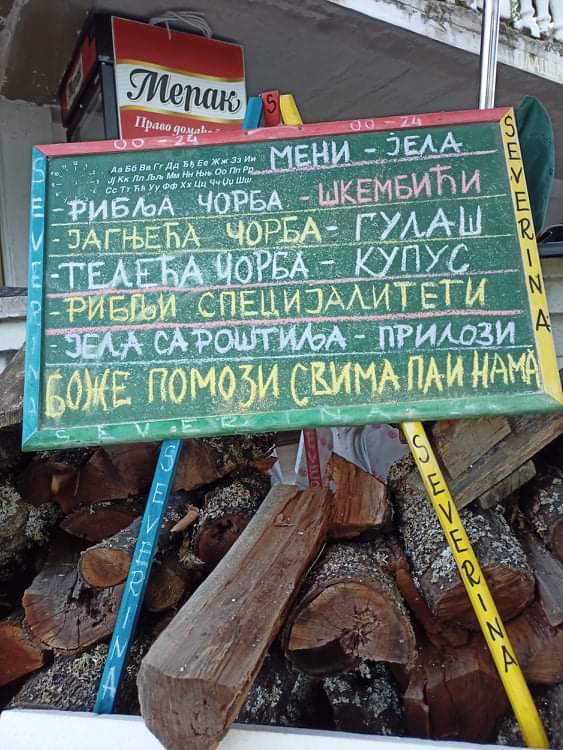 Мерак
Право домаће
S
00-24
00-24
Аа Бб Вв Гг Дд Ђђ Ее Жж Зз Ии
Јј Кк Лл Љљ Мм Нн Њњ Оо Пп Рр
Сс Тт Ћћ Уу Фф Хх Цц Чч Џџ Шш
МЕНИ - ЈЕЛА
- РИБЉА ЧОРБА - ШКЕМБИЋИ
- ЈАГЊЕЋА ЧОРБА - ГУЛАШ
- ТЕЛЕЋА ЧОРБА - КУПУС
- РИБЉИ СПЕЦИЈАЛИТЕТИ
ЈЕЛА СА РОШТИЉА - ПРИЛОЗИ
БОЖЕ ПОМОЗИ СВИМА ПА И НАМА
SEVERINA
SEVERINA
SEVERINA
SEVERINA
SEVERINA